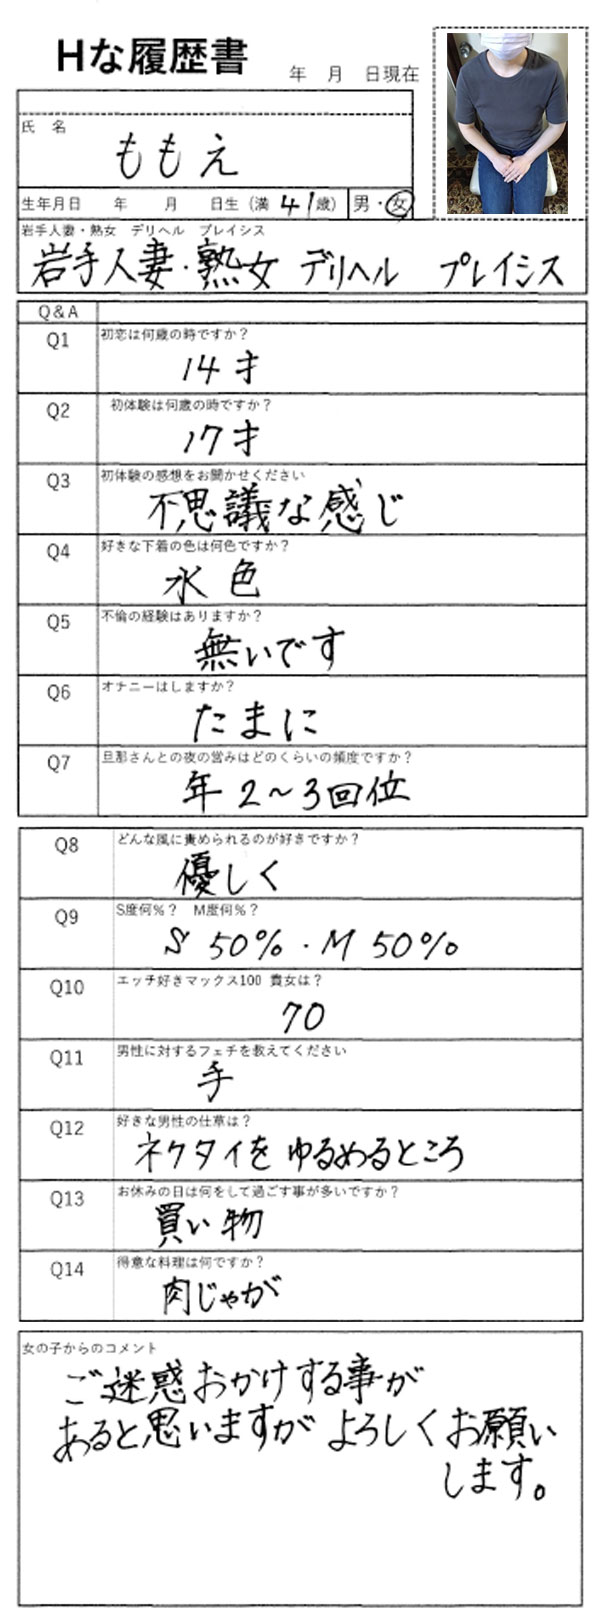 Hな履歴書
年 月 日現在
氏 名
ももえ
生年月日 年 月 日生 (満 41歳) 男・女
岩手人妻・熟女 デリヘル プレイシス
岩手人妻・熟女 デリヘル プレイシス
Q&A
Q1 初恋は何歳の時ですか?
14才
Q2 初体験は何歳の時ですか?
17才
Q3 初体験の感想をお聞かせください
不思議な感じ
Q4 好きな下着の色は何色ですか?
水色
Q5 不倫の経験はありますか?
無いです
Q6 オナニーはしますか?
たまに
Q7 旦那さんとの夜の営みはどのくらいの頻度ですか?
年2〜3回位
Q8 どんな風に責められるのが好きですか?
優しく
Q9 S度何%? M度何%?
S 50%・M 50%
Q10 エッチ好きマックス100 貴女は?
70
Q11 男性に対するフェチを教えてください
手
Q12 好きな男性の仕草は?
ネクタイを ゆるめるところ
Q13 お休みの日は何をして過ごす事が多いですか?
買い物
Q14 得意な料理は何ですか?
肉じゃが
女の子からのコメント
ご迷惑おかけする事が
あると思いますが よろしくお願い
します。